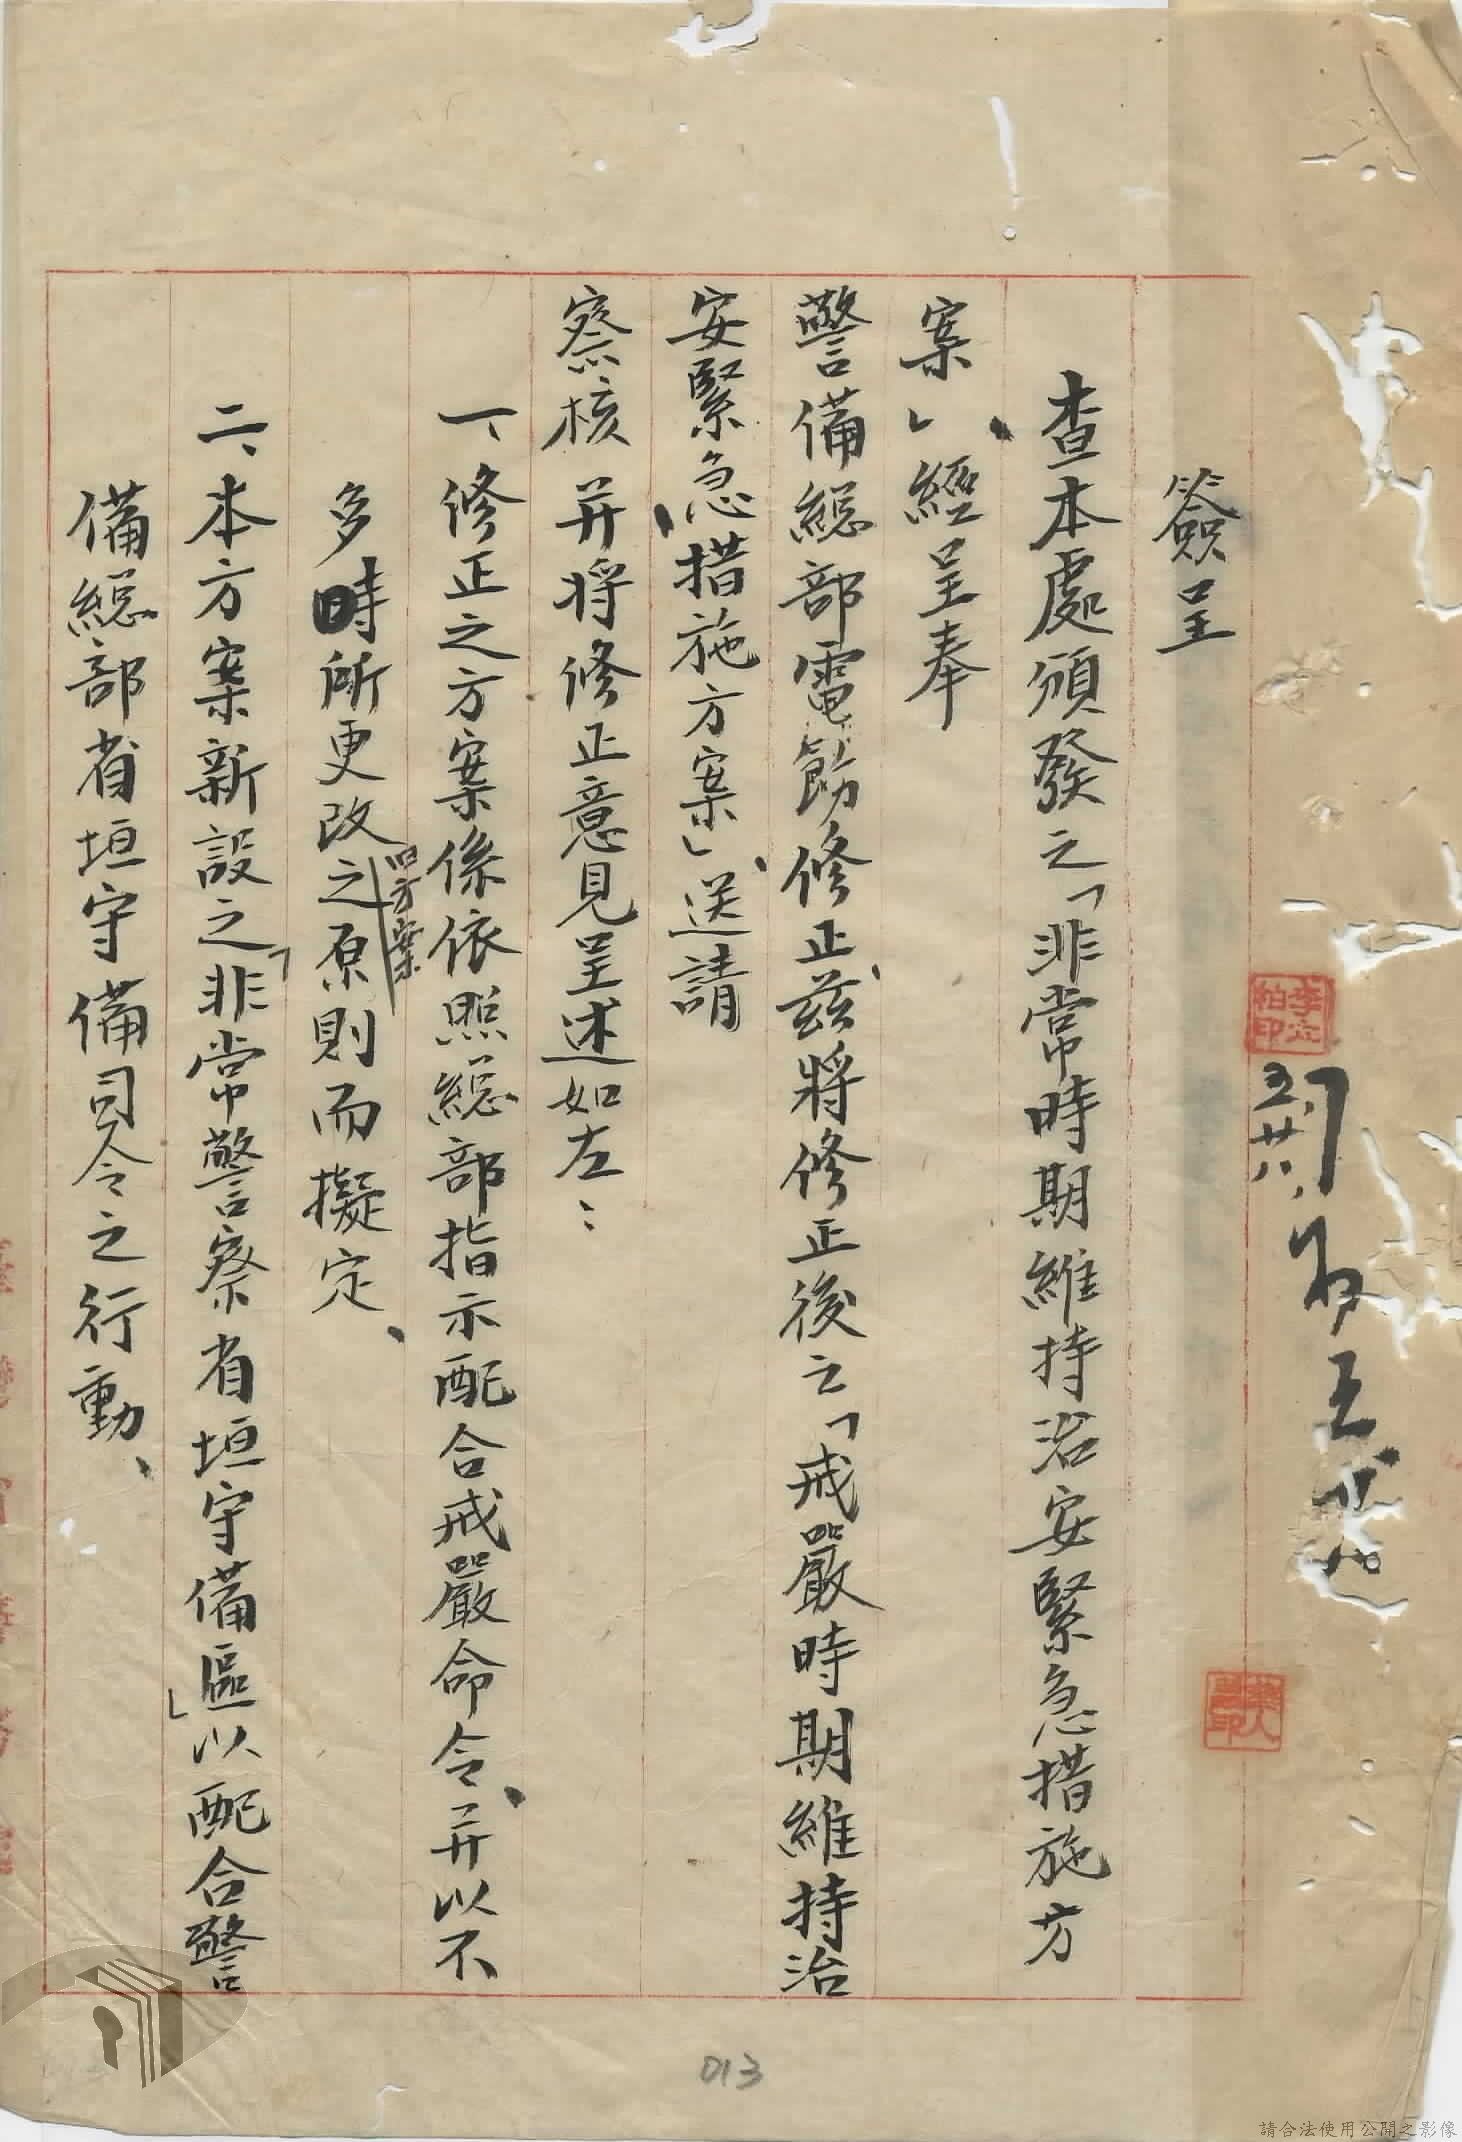 簽呈
查本處頒發之「非常時期維持治安緊急措施方
案」、經呈奉
警備總部電飭修正、茲將修正後之「戒嚴時期維持治
安緊急措施方案」、送請
察核、并將修正意見呈述如左：
一、修正之方案係依照總部指示配合戒嚴命令、并以不
多時所更改之原則而擬定、
舊方案
二、本方案新設之「非常警察省垣守備區」以配合警
備總部省垣守備司令之行動、
五廿八
013
請合法使用公開之影像